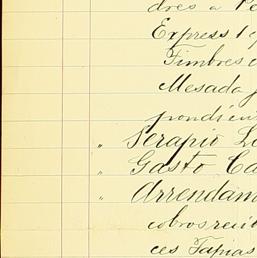 dres a
Express
Timbres
Mesada
pondien
" Serapio
" Gasto Ca
" Arrendam
cobros reci
ces Tapias